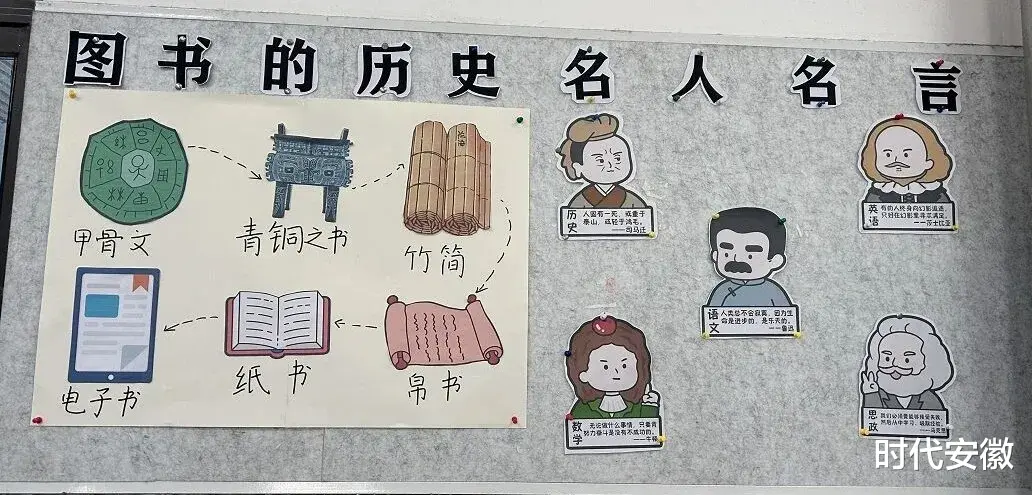 图书的历史 名人名言
甲骨文
青铜之书
竹简
帛书
纸书
电子书
历史
人固有一死，或重于
泰山，或轻于鸿毛。
——司马迁
英语
有的人终身向幻影追逐，
只好在幻影里寻求满足。
——莎士比亚
语文
人类总不会寂寞，因为生
命是进步的，是乐天的。
——鲁迅
数学
无论做什么事情，只要肯
努力奋斗是没有不成功的。
——牛顿
思政
我们必须要能够接受失败，
然后从中学习，吸取经验。
——马克思
时代安徽